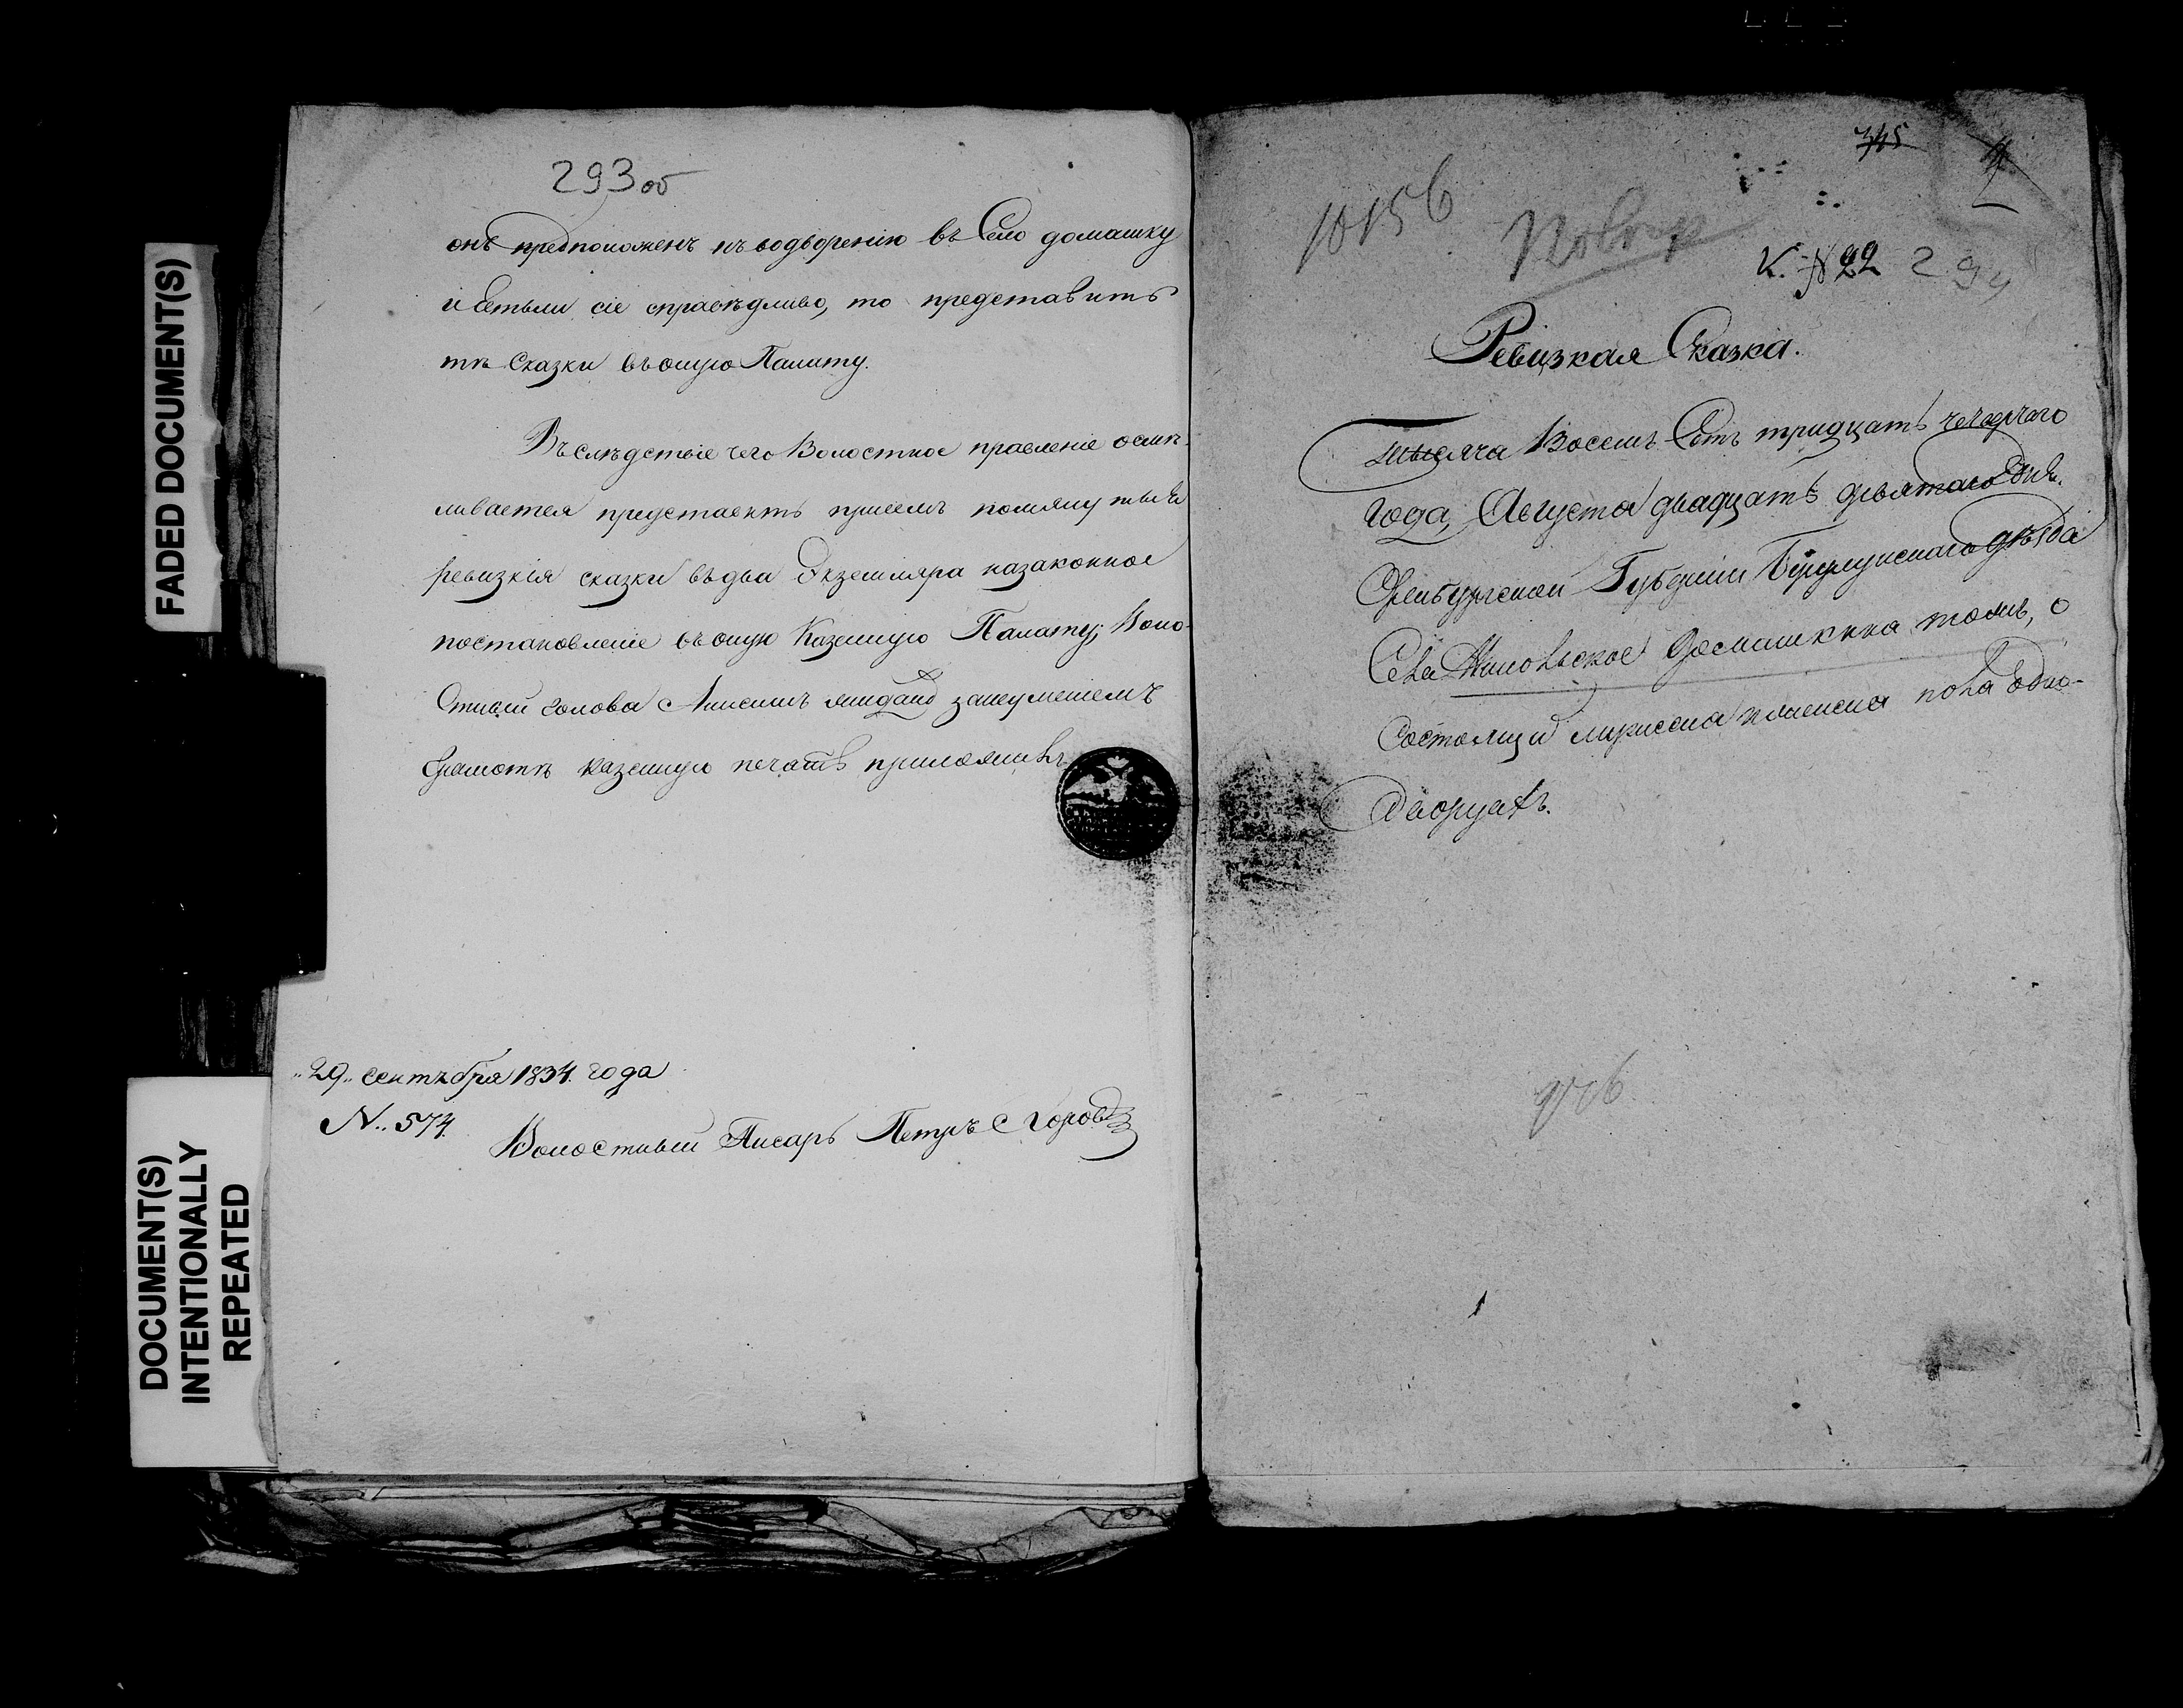 FADED DOCUMENT(S)
DOCUMENT(S)
INTENTIONALLY
REPEATED
293 об
онъ предположенъ къ водворенію въ Село домашку
и Естьли сіе справедливо, то представить
тѣ Сказки въ оную Палату.
Въ слѣдствіе чего Волостное правленіе осмѣ-
ливается представить присемъ помянутыя
ревизкія сказки въ два Экземпляра на законное
постановленіе въ оную Казенную Палату; Воло-
Стный голова Анисимъ занеумѣніемъ
Грамотѣ казенную печать приложилъ
"29" сентября 1834. года
N. 574.
Волостный Писарь Петръ Егоровъ
345
10156
Повтор
К. № 22 294
Ревизкая Сказка.
тысяча Восемь Сотъ тридцать четвертаго
года, Августа двадцать девятаго дня.
Оренбургской Губерніи Бузулускаго уѣзда
Села Никольское Домашкина тожъ, о
Состоящи мужеска и женска пола одно-
дворцахъ.